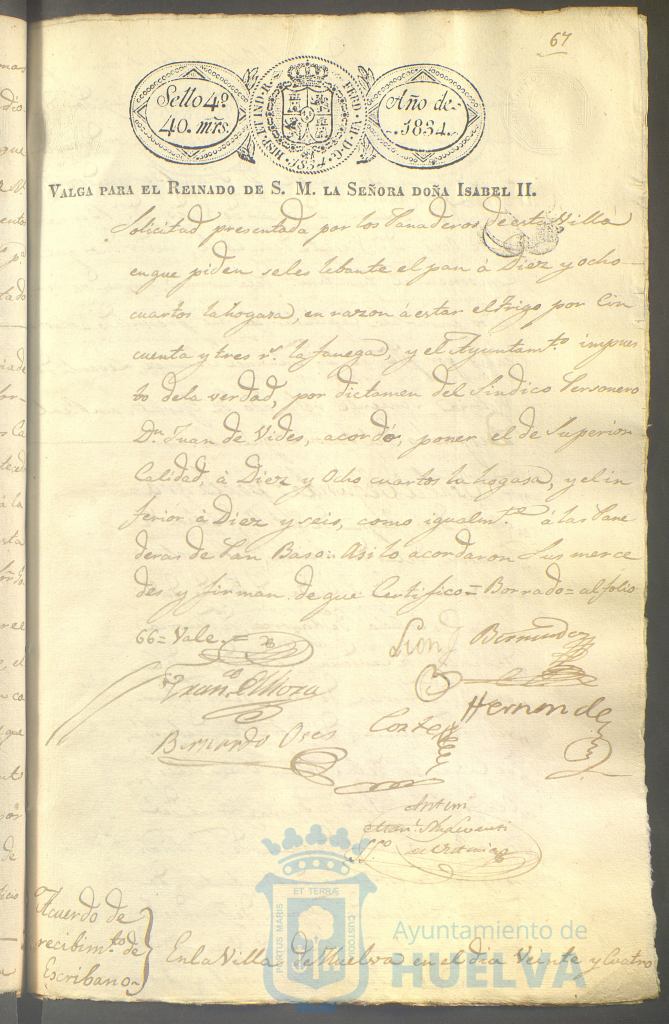 67
Sello 4º
40. mrs.
HISP. ET IND. R.
FERD. VII. D. G.
1834
Año de
1834.
VALGA PARA EL REINADO DE S. M. LA SEÑORA DOÑA ISABEL II.
Solicitud presentada por los Panaderos de esta Villa
en que piden se les lebante el pan á Diez y ocho
cuartos la hogasa, en razon á estar el trigo por Cin
cuenta y tres rs. la fanega, y el Ayuntamto. impues
to de la verdad, por dictamen del Sindico Personero
Dn. Juan de Vides, acordó, poner el de Superior
Calidad, á Diez y Ocho cuartos la hogasa, y el in
ferior á Diez y seis, como igualmte. á las Pane
deras de Pan Baso: Asi lo acordaron Sus merce
des y firman de que Certifico = Borrado = al folio
66 = Vale =
Bermudez
Hernande
Bernardo Oses
Cortes
Acuerdo de
recibimto. de
Escribano
En la Villa de Huelva en el dia Veinte y Cuatro
PORTUS MARIS
ET TERRÆ
CUSTODIA
Ayuntamiento de
HUELVA